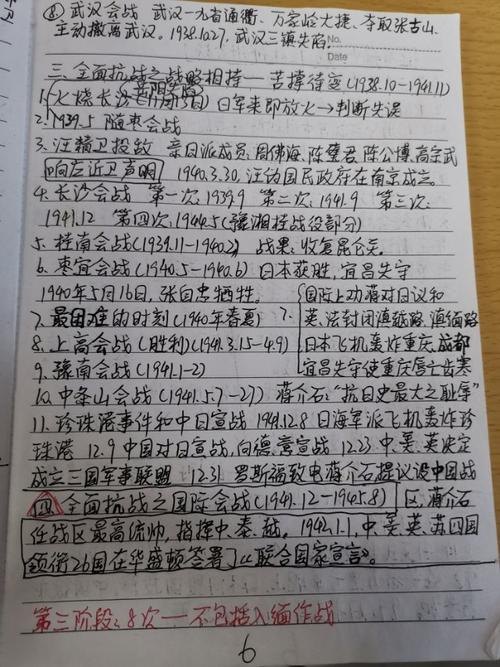 ⑧ 武汉会战 武汉—九省通衢、万家岭大捷、夺取张古山、
主动撤离武汉。1938.10.27.武汉三镇失陷。
No.
Date
三. 全面抗战之战略相持——苦撑待变(1938.10-1941.11)
岳阳失陷
1. 火烧长沙(11月13日) 日军来即放火→判断失误
2. 1939.5 随枣会战
3. 汪精卫投敌 亲日派成员:周佛海、陈璧君、陈公博、高宗武
响应近卫声明 1940.3.30. 汪伪国民政府在南京成立
4. 长沙会战 第一次:1939.9 第二次:1941.9 第三次:
1941.12 第四次:1944.5(豫湘桂战役部分)
5. 桂南会战(1939.11-1940.2) 战果:收复昆仑关。
6. 枣宜会战(1940.5-1940.6) 日本获胜,宜昌失守
1940年5月16日,张自忠牺牲。
国际上劝蒋对日议和
7. 最困难的时刻(1940年春夏) 7.
英、法封闭滇越路、滇缅路
8. 上高会战(胜利)(1941.3.15-4.9)
日本飞机轰炸重庆、成都
9. 豫南会战(1941.1-2)
宜昌失守使重庆唇亡齿寒
10. 中条山会战(1941.5.7-27) 蒋介石:“抗日史最大之耻辱”
11. 珍珠港事件和中日宣战 1941.12.8 日海军派飞机轰炸珍
珠港 12.9 中国对日宣战,向德、意宣战 12.23 中、美、英决定
成立三国军事联盟 12.31 罗斯福致电蒋介石提议设中国战
四 全面抗战之国际会战(1941.12-1945.8) 区,蒋介石
任战区最高统帅,指挥中、泰、越。1942.1.1,中、美、英、苏四国
领衔26国在华盛顿签署了《联合国家宣言》。
第三阶段:8次——不包括入缅作战
6